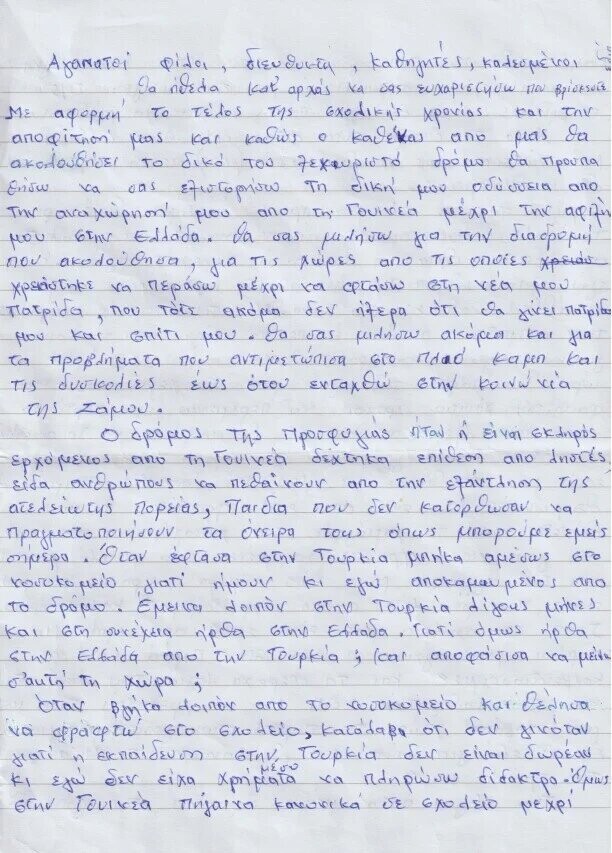 Αγαπητοί φίλοι, διευθυντα, καθηγητές, καλεσμένοι
Θα ήθελα κατ' αρχάς να σας ευχαριστήσω που βρίσκεστε
Με αφορμή το τέλος της σχολικής χρονιάς και την
αποφίτησή μας και καθώς ο καθένας απο μας θα
ακολουθήσει το δικό του ξεχωριστό δρόμο θα προσπα
θήσω να σας εξιστορήσω τη δική μου οδύσσεια απο
την αναχώρησή μου απο τη Γουινέα μέχρι την αφιξη
μου στην Ελλάδα. Θα σας μιλήσω για την διαδρομή
που ακολούθησα, για τις χώρες απο τις οποίες
χρειάστηκε να περάσω μέχρι να φτάσω στη νέα μου
πατρίδα, που τότε ακόμα δεν ήξερα ότι θα γίνει πατρίδα
μου και σπίτι μου. Θα σας μιλήσω ακόμα και για
τα προβλήματα που αντιμετώπισα στο καμπ και
τις δυσκολίες έως ότου ενταχθώ στην κοινωνία
της Σάμου.
Ο δρόμος της προσφυγιάς ήταν ή είναι σκληρός
ερχόμενος απο τη Γουινέα δέχτηκα επίθεση απο ληστές
είδα ανθρώπους να πεθαίνουν απο την εξάντληση της
ατελείωτης πορείας, παιδια που δεν κατόρθωσαν να
πραγματοποιήσουν τα όνειρα τους όπως μπορούμε εμείς
σήμερα. Όταν έφτασα στην Τουρκία μπήκα αμέσως στο
νοσοκομείο γιατί ήμουν κι εγώ αποκαμωμένος απο
το δρόμο. Έμεινα λοιπόν στην Τουρκία λίγους μήνες
και στη συνέχεια ήρθα στην Ελλάδα. Γιατί όμως ήρθα
στην Ελλάδα απο την Τουρκία; και αποφάσισα να μείνω
σ'αυτή τη χώρα;
Όταν βγήκα λοιπόν απο το νοσοκομείο και θέλησα
να φραφτώ στο σχολείο, κατάλαβα ότι δεν γινόταν
γιατί η εκπαίδευση στην Τουρκία δεν είναι δωρέαν
κι εγώ δεν είχα χρήματα να πληρώσω δίδακτρα. Όμως
στην Γουινέα πήγαινα κανονικά σε σχολείο μεχρί